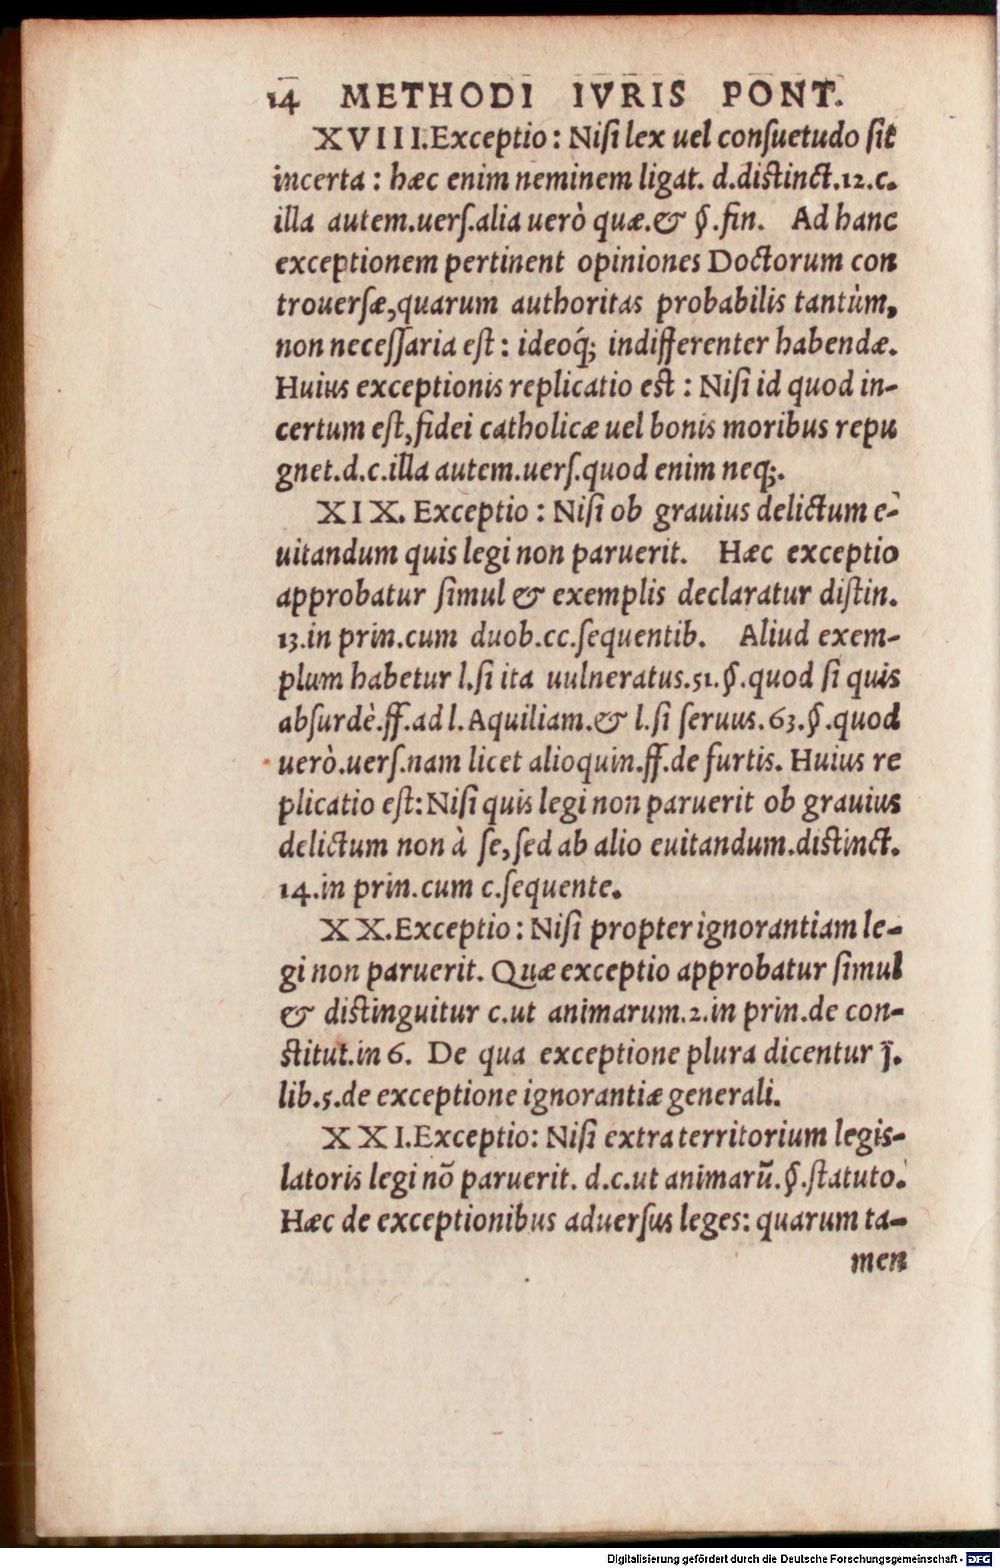 14 METHODI IVRIS PONT.
XVIII.Exceptio: Niſi lex uel conſuetudo ſit
incerta: hæc enim neminem ligat. d.distinct.12.c.
illa autem.uerſ.alia uerò quæ.& §.fin. Ad hanc
exceptionem pertinent opiniones Doctorum con
trouerſæ,quarum authoritas probabilis tantùm,
non neceſſaria eſt: ideoq́; indifferenter habendæ.
Huius exceptionis replicatio est: Niſi id quod in-
certum eſt,fidei catholicæ uel bonis moribus repu
gnet.d.c.illa autem.uerſ.quod enim neq;.
XIX. Exceptio: Niſi ob grauius delictum e-
uitandum quis legi non paruerit. Hæc exceptio
approbatur ſimul & exemplis declaratur diſtin.
13.in prin.cum duob.cc.ſequentib. Aliud exem-
plum habetur l.ſi ita uulneratus.51.§.quod ſi quis
abſurdè.ff.ad l.Aquiliam.& l.ſi ſeruus.63.§.quod
uerò.uerſ.nam licet alioquin.ff.de furtis. Huius re
plicatio eſt: Niſi quis legi non paruerit ob grauius
delictum non à ſe,ſed ab alio euitandum.distinct.
14.in prin.cum c.ſequente.
XX.Exceptio: Niſi propter ignorantiam le-
gi non paruerit. Quæ exceptio approbatur ſimul
& distinguitur c.ut animarum.2.in prin.de con-
stitut.in 6. De qua exceptione plura dicentur j̄.
lib.5.de exceptione ignorantiæ generali.
XXI.Exceptio: Niſi extra territorium legis-
latoris legi nõ paruerit. d.c.ut animarũ.§.ſtatuto.
Hæc de exceptionibus aduerſus leges: quarum ta-
men
Digitalisierung gefördert durch die Deutsche Forschungsgemeinschaft - DFG